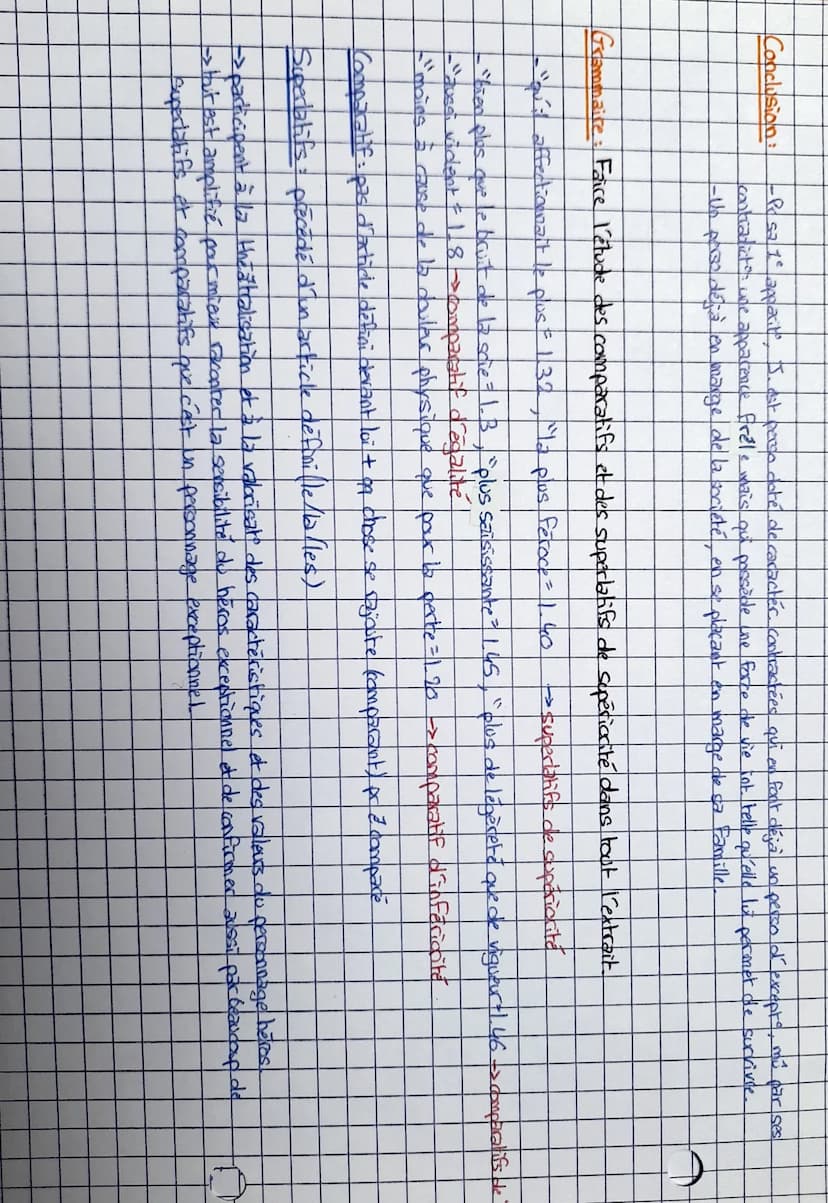 Conclusion: - Pr sa 1e apparit°, J. est perso doté de caractér. contrastées qui en font déjà un perso d'except°, mû par ses
contradict° : une apparence frêle mais qui possède une force de vie int. telle qu'elle lui permet de survivre.
- Un perso déjà en marge de la société, en se plaçant en marge de sa famille.
Grammaire : Faire l'étude des comparatifs et des superlatifs de supériorité dans tout l'extrait.
- "qu'il affectionnait le plus = l.32, "la plus féroce = l.40 → superlatifs de supériorité
- "bien plus que le bruit de la scie = l.3, "plus saisissante = l.45, "plus de légèreté que de vigueur = l.46 → comparatifs de
- "aussi vident = l.8 → comparatif d'égalité
- "moins à cause de la douleur physique que pour la perte = l.20 → comparatif d'infériorité
Comparatif : pas d'article défini devant lui + qq chose se rajoute (comparant) pr ê comparé
Superlatifs : précédé d'un article défini (le/la/les)
→ participent à la théâtralisation et à la valorisat° des caractéristiques et des valeurs du personnage héros.
→ tout est amplifié pour mieux raconter la sensibilité du héros exceptionnel et de confirmer aussi par beaucoup de
superlatifs et comparatifs que c'est un personnage exceptionnel.